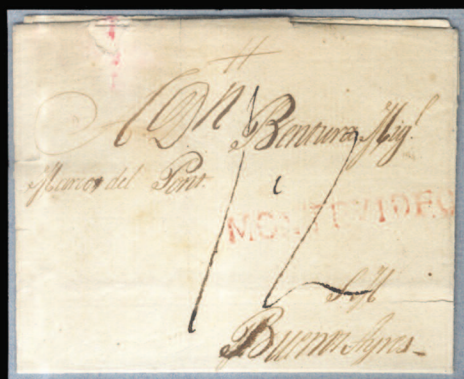 A Dn Bentura Migl
Marco del Pont
MONTEVIDEO
Buenos Ayres